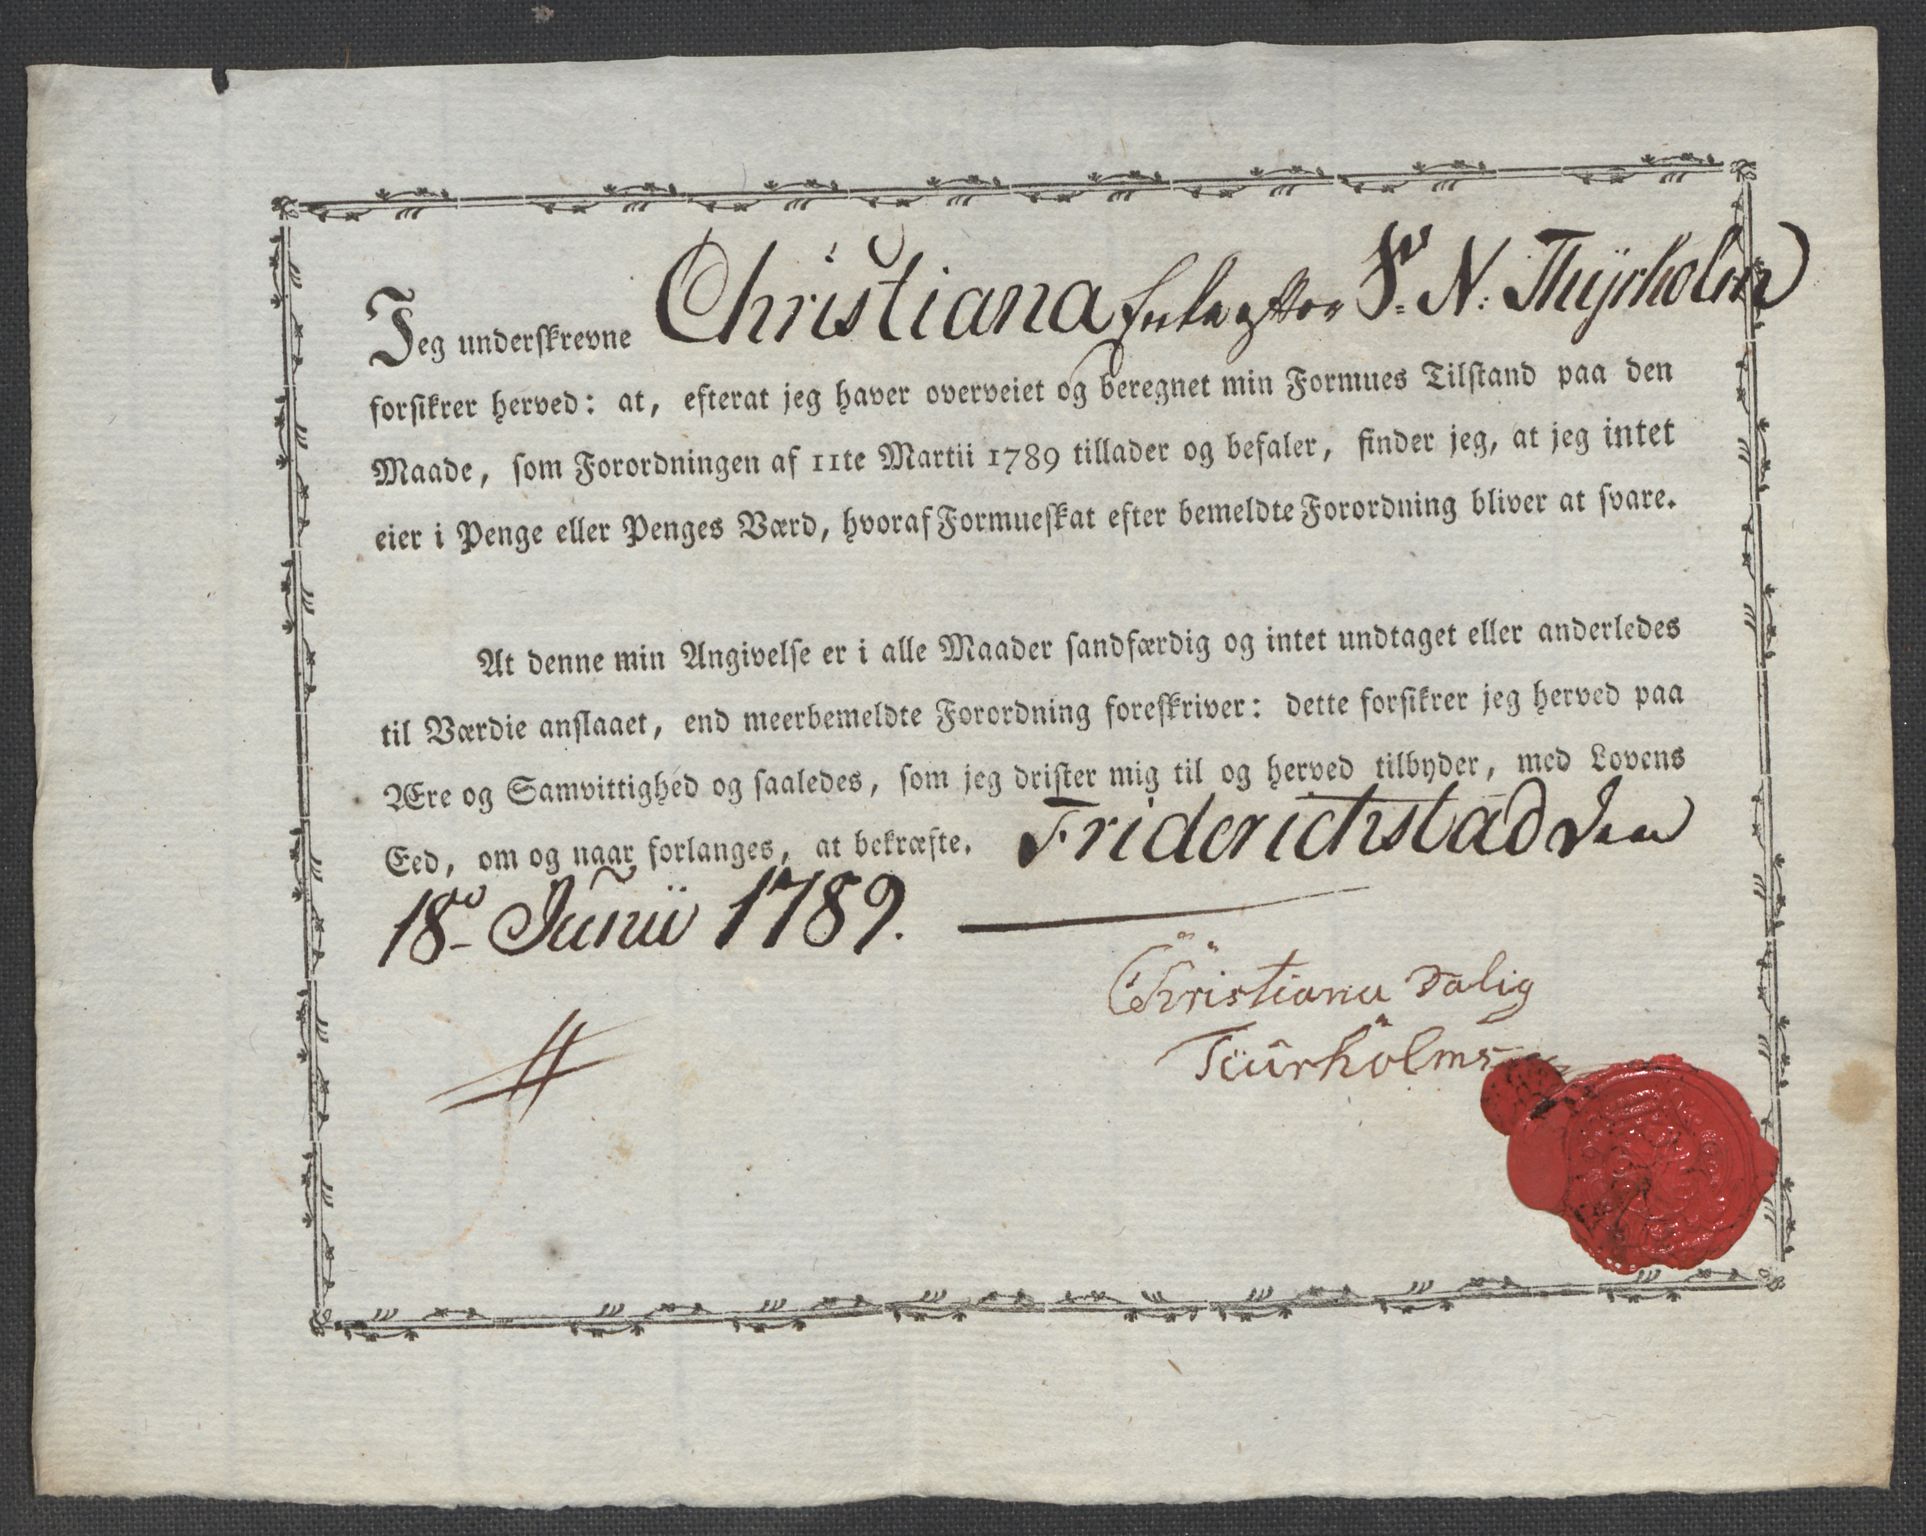 Jeg underskrevne Christiana Enke efter Sr. N. Thÿrholm
forsikrer herved: at, efterat jeg haver overveiet og beregnet min Formues Tilstand paa den
Maade, som Forordningen af 11te Martii 1789 tillader og befaler, finder jeg, at jeg intet
eier i Penge eller Penges Værd, hvoraf Formueskat efter bemeldte Forordning bliver at svare.
At denne min Angivelse er i alle Maader sandfærdig og intet undtaget eller anderledes
til Værdie anslaaet, end meerbemeldte Forordning foreskriver: dette forsikrer jeg herved paa
Ære og Samvittighed og saaledes, som jeg drister mig til og herved tilbyder, med Lovens
Eed, om og naar forlanges, at bekræfte. Friderichstad den
18de Junii 1789.
Christiana Salig